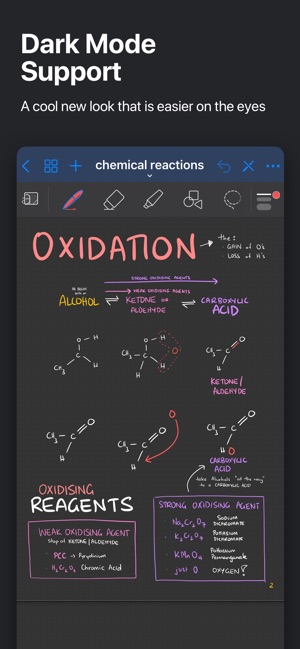 Dark Mode
Support
A cool new look that is easier on the eyes
chemical reactions
OXIDATION
the:
· GAIN of O's
· LOSS of H's
STRONG OXIDISING AGENTS
WEAK OXIDISING AGENTS
ALCOHOL
KETONE or
ALDEHYDE
CARBOXYLIC
ACID
O - H
C
CH3
H
H
O
CH3 - C - H
O
H
O
CH3 - C
H
KETONE/
ALDEHYDE
O
CH3 - C
H
O
O
CH3 - C
H
O
CH3 - C
H O
CARBOXYLIC
ACID
take Alcohols "all the way"
to a CARBOXYLIC ACID
OXIDISING
REAGENTS
WEAK OXIDISING AGENT
Stop at KETONE/ALDEHYDE
· PCC → Pyridinium
· H2Cr2O7 Chromic Acid
STRONG OXIDISING AGENT
· Na2Cr2O7 SODIUM DICHROMATE
· K2Cr2O7 POTASSIUM DICHROMATE
· KMnO4 Potassium Permanganate
· just O OXYGEN?
2